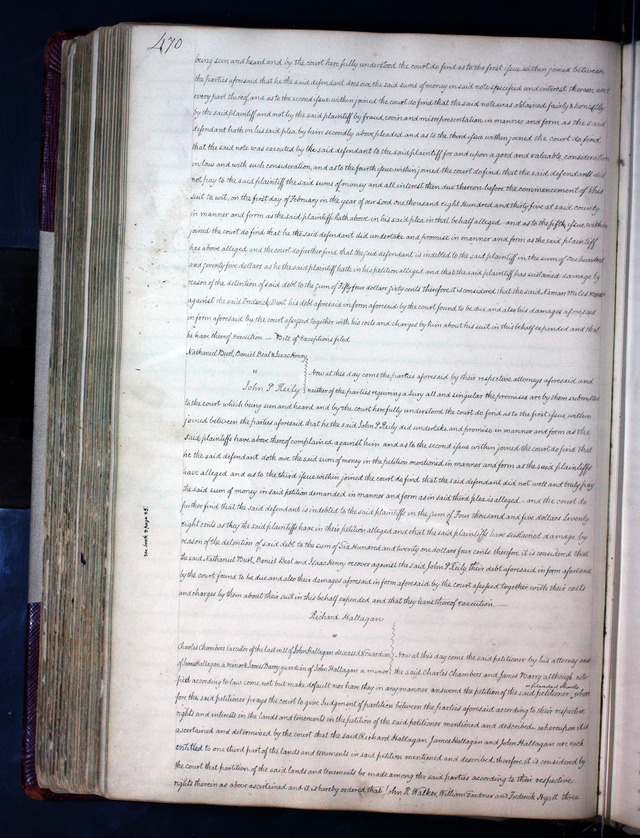 470
being seen and heard and by the court here fully understood the court do find as to the first issue within joined between
the parties aforesaid that he the said defendant does owe the said sums of money in said note specified and interest thereon and
every part thereof, and as to the second issue within joined the court do find that the said note was obtained fairly & honestly
by the said plaintiff and not by the said plaintiff by fraud, covin and misrepresentation in manner and form as the said
defendant hath in his said plea by him secondly above pleaded and as to the third issue within joined the court do find
that the said note was executed by the said defendant to the said plaintiff for and upon a good and valuable consideration
in law and with such consideration, and as to the fourth issue within joined the court do find that the said defendant did
not pay to the said plaintiff the said sums of money and all interest then due thereon before the commencement of this
suit to wit, on the first day of February in the year of our lord one thousand eight hundred and thirty five at said county
in manner and form as the said plaintiff hath above in his said plea in that behalf alleged and as to the fifth issue within
joined the court do find that he the said defendant did undertake and promise in manner and form as the said plaintiff
has above alleged and the court do further find that the said defendant is indebted to the said plaintiff in the sum of one hundred
and seventy five dollars as he the said plaintiff hath in his petition alleged and that the said plaintiff has sustained damage by
reason of the detention of said debt to the sum of Fifty four dollars sixty cents therefore it is considered that the said Miles
against the said Frederick Dent his debt aforesaid in form aforesaid by the court found to be due and also his damages aforesaid
in form aforesaid by the court assessed together with his costs and charges by him about his suit in this behalf expended and that
he have thereof execution — Bill of exceptions filed
Nathaniel Burt, Daniel Deal & Isaac Henry
vs
John P. Reily
Now at this day come the parties aforesaid by their respective attorneys aforesaid and
neither of the parties requiring a jury all and singular the premises are by them submitted
to the court which being seen and heard and by the court here fully understood the court do find as to the first issue within
joined between the parties aforesaid that he the said John P. Reily did undertake and promise in manner and form as the
said plaintiffs have above thereof complained against him and as to the second issue within joined the court do find that
he the said defendant doth owe the said sum of money in the petition mentioned in manner and form as the said plaintiffs
have alleged and as to the third issue within joined the court do find that the said defendant did not well and truly pay
the said sum of money in said petition demanded in manner and form as in said third plea is alleged — and the court do
further find that the said defendant is indebted to the said plaintiffs in the sum of Four thousand and five dollars Seventy
eight cents as they the said plaintiffs have in their petition alleged and that the said plaintiffs have sustained damage by
reason of the detention of said debt to the sum of Six Hundred and twenty one dollars four cents therefore it is considered that
the said Nathaniel Burt, Daniel Deal and Isaac Henry recover against the said John P. Reily their debt aforesaid in form aforesaid
by the court found to be due and also their damages aforesaid in form aforesaid by the court assessed together with their costs
and charges by them about their suit in this behalf expended and that they have thereof execution. —
see book 9 page 48
Richard Hallagan
vs
Charles Chambers Executor of the last will of John Hallagan deceased & Guardian
of James Hallagan a minor & James Barry guardian of John Hallagan a minor
Now at this day come the said petitioner by his attorney and
the said Charles Chambers and James Barry although noti-
fied according to law come not but make default nor have they in any manner answered the petition of the said petitioner, where
fore the said petitioner prays the court to give Judgment of partition between the parties aforesaid according to their respective
rights and interests in the lands and tenements in the petition of the said petitioner mentioned and described whereupon it is
ascertained and determined by the court that the said Richard Hallagan James Hallagan and John Hallagan are each
entitled to one third part of the lands and tenements in said petition mentioned and described, therefore it is considered by
the court that partition of the said lands and tenements be made among the said parties according to their respective
rights therein as above ascertained and it is hereby ordered that John K. Walker, William and Frederick Hyatt three